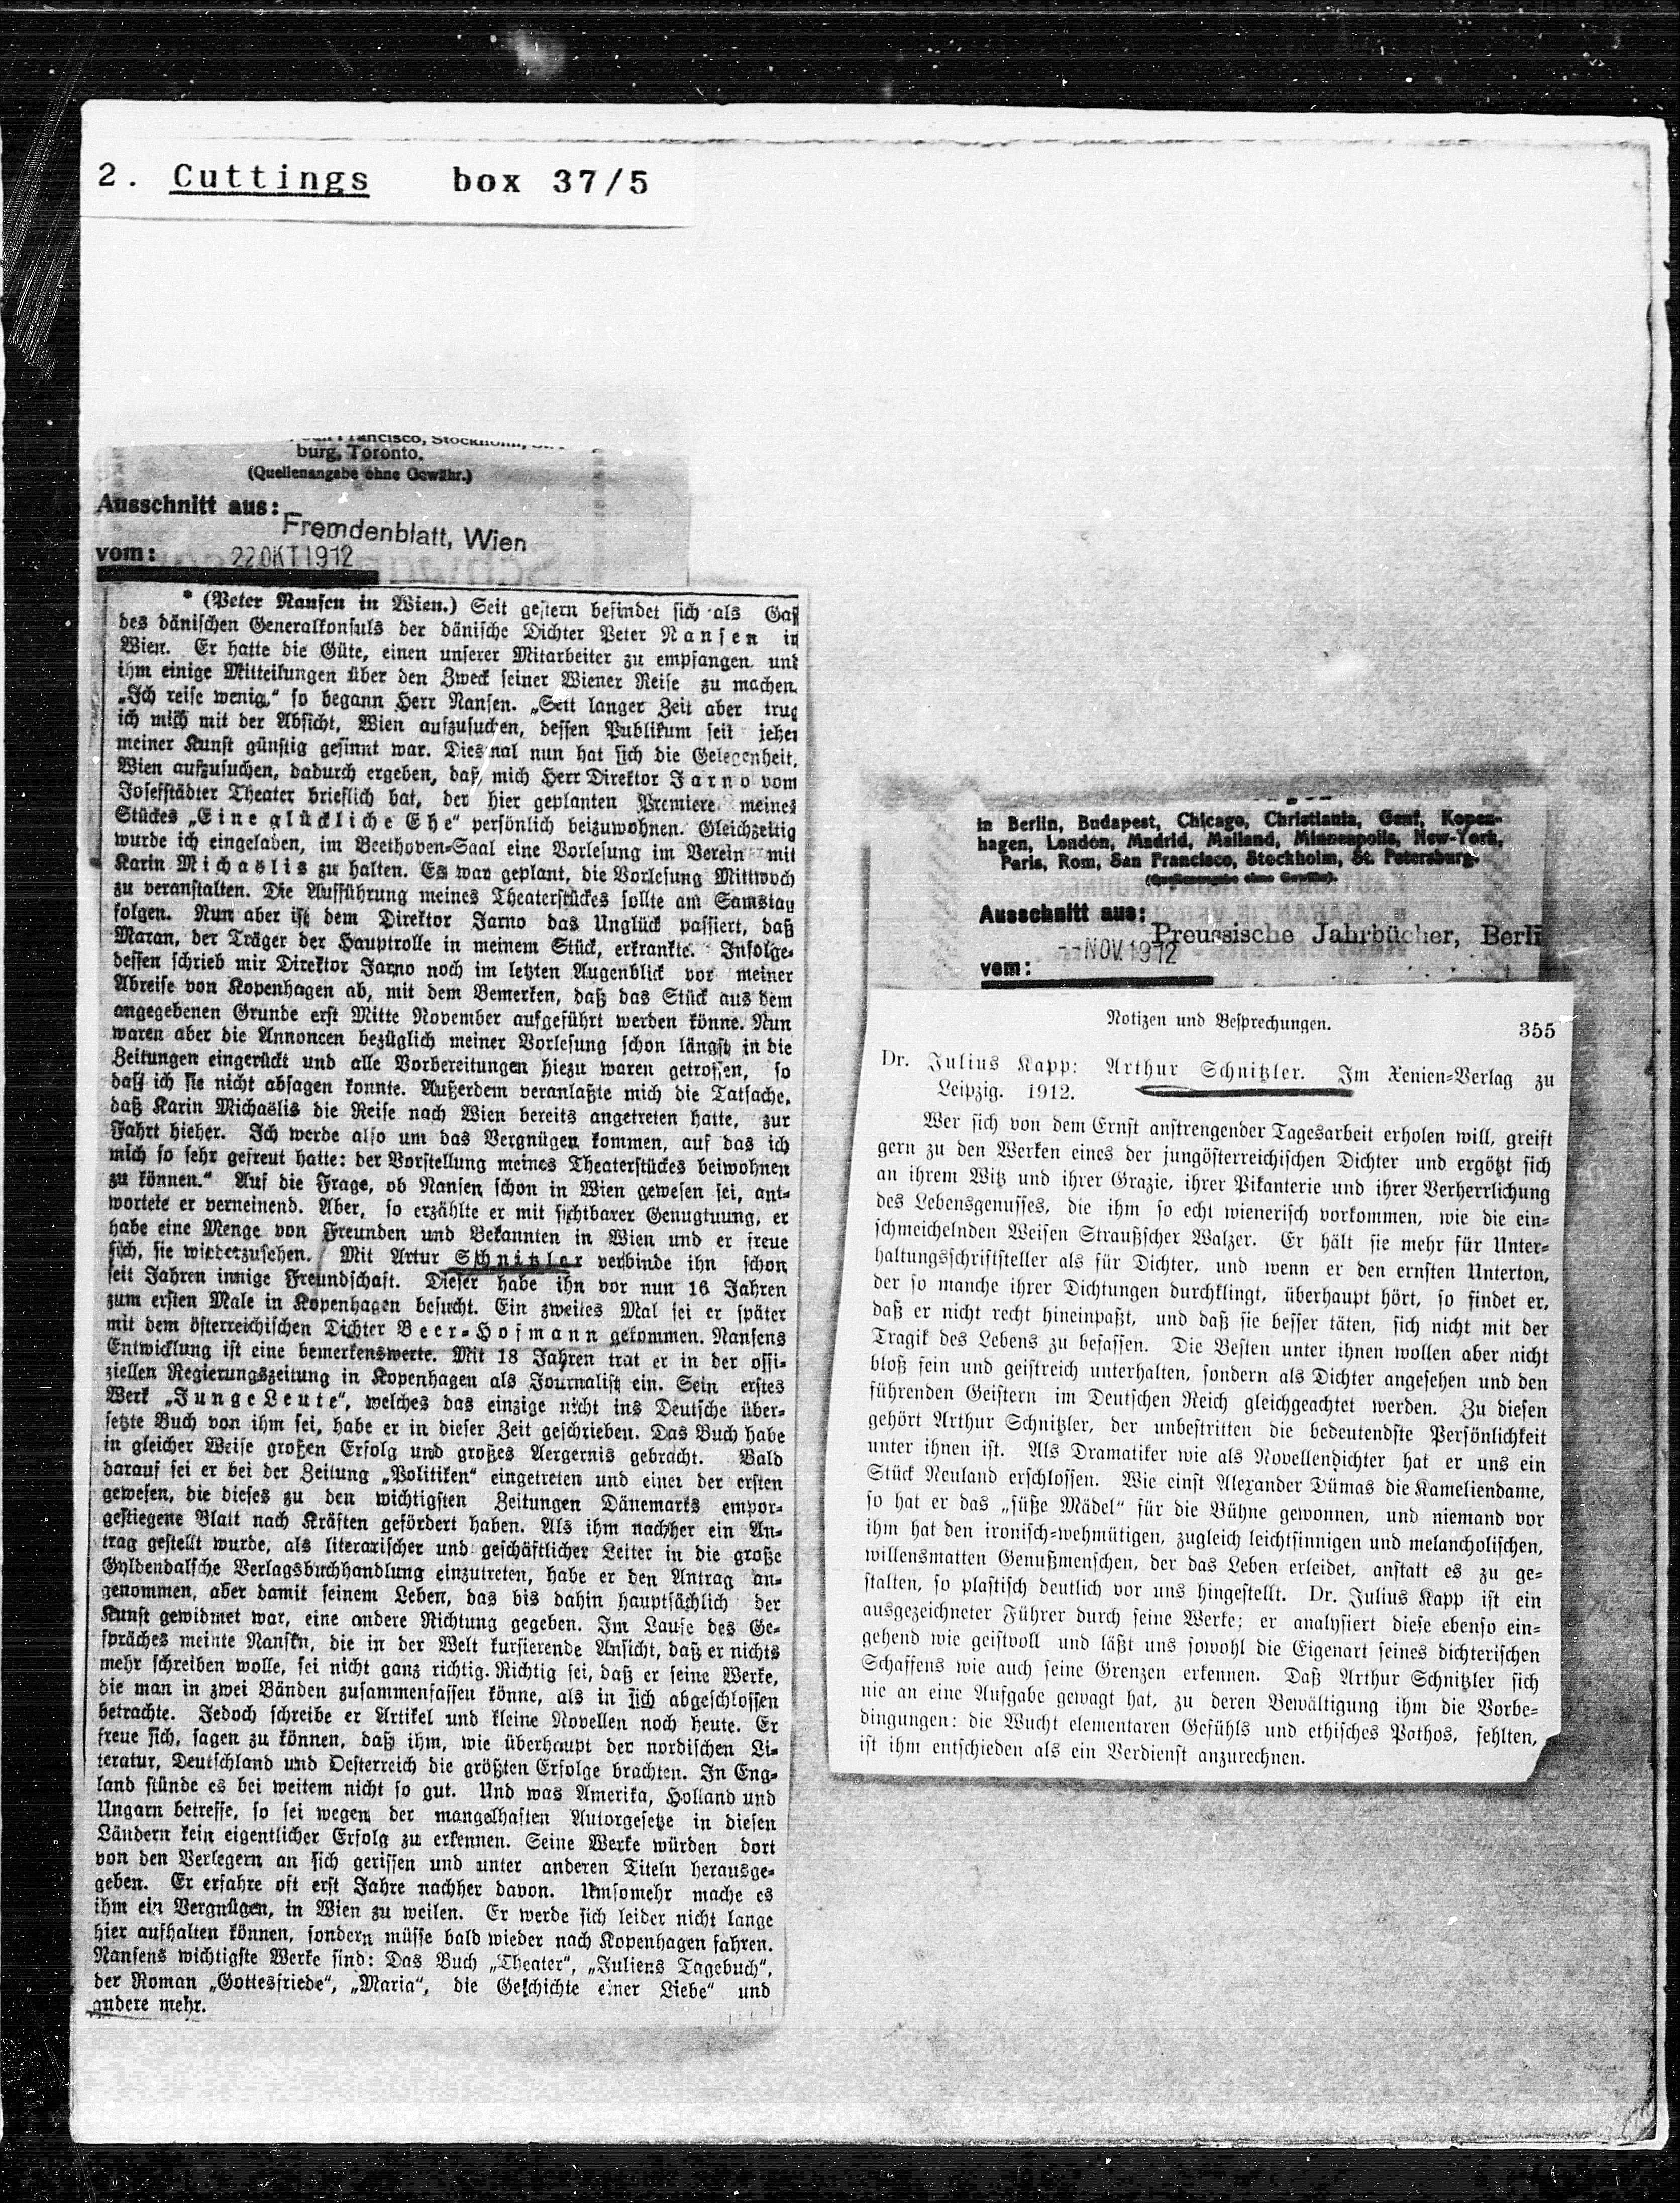 2. Cuttings box 37/5
burg, Toronto.
(Quellenangabe ohne Gewähr.)
Ausschnitt aus:
Fremdenblatt, Wien
vom: 22 OKT 1912
* (Peter Nansen in Wien.) Seit gestern befindet sich als Gas
des dänischen Generalkonsuls der dänische Dichter Peter Nansen in
Wien. Er hatte die Güte, einen unserer Mitarbeiter zu empfangen und
ihm einige Mitteilungen über den Zweck seiner Wiener Reise zu machen.
„Ich reise wenig,“ so begann Herr Nansen. „Seit langer Zeit aber trug
ich mich mit der Absicht, Wien aufzusuchen, dessen Publikum seit jeher
meiner Kunst günstig gesinnt war. Diesmal nun hat sich die Gelegenheit,
Wien aufzusuchen, dadurch ergeben, daß mich Herr Direktor Jarno vom
Josefstädter Theater brieflich bat, der hier geplanten Premiere meines
Stückes „Eine glückliche Ehe“ persönlich beizuwohnen. Gleichzeitig
wurde ich eingeladen, im Beethoven-Saal eine Vorlesung im Verein mit
Karin Michaëlis zu halten. Es war geplant, die Vorlesung Mittwoch
zu veranstalten. Die Aufführung meines Theaterstückes sollte am Samstag
folgen. Nun aber ist dem Direktor Jarno das Unglück passiert, daß
Maran, der Träger der Hauptrolle in meinem Stück, erkrankte. Infolge-
dessen schrieb mir Direktor Jarno noch im letzten Augenblick vor meiner
Abreise von Kopenhagen ab, mit dem Bemerken, daß das Stück aus dem
angegebenen Grunde erst Mitte November aufgeführt werden könne. Nun
waren aber die Annoncen bezüglich meiner Vorlesung schon längst in die
Zeitungen eingerückt und alle Vorbereitungen hiezu waren getroffen, so
daß ich sie nicht absagen konnte. Außerdem veranlaßte mich die Tatsache,
daß Karin Michaëlis die Reise nach Wien bereits angetreten hatte, zur
Fahrt hieher. Ich werde also um das Vergnügen kommen, auf das ich
mich so sehr gefreut hatte: der Vorstellung meines Theaterstückes beiwohnen
zu können.“ Auf die Frage, ob Nansen schon in Wien gewesen sei, ant-
wortete er verneinend. Aber, so erzählte er mit sichtbarer Genugtuung, er
habe eine Menge von Freunden und Bekannten in Wien und er freue
sich, sie wiederzusehen. Mit Artur Schnitzler verbinde ihn schon
seit Jahren innige Freundschaft. Dieser habe ihn vor nun 16 Jahren
zum ersten Male in Kopenhagen besucht. Ein zweites Mal sei er später
mit dem österreichischen Dichter Beer-Hofmann gekommen. Nansens
Entwicklung ist eine bemerkenswerte. Mit 18 Jahren trat er in der offi-
ziellen Regierungszeitung in Kopenhagen als Journalist ein. Sein erstes
Werk „Junge Leute“, welches das einzige nicht ins Deutsche über-
setzte Buch von ihm sei, habe er in dieser Zeit geschrieben. Das Buch habe
in gleicher Weise großen Erfolg und großes Aergernis gebracht. Bald
darauf sei er bei der Zeitung „Politiken“ eingetreten und einer der ersten
gewesen, die dieses zu den wichtigsten Zeitungen Dänemarks empor-
gestiegene Blatt nach Kräften gefördert haben. Als ihm nachher ein An-
trag gestellt wurde, als literarischer und geschäftlicher Leiter in die große
Gyldendalsche Verlagsbuchhandlung einzutreten, habe er den Antrag an-
genommen, aber damit seinem Leben, das bis dahin hauptsächlich der
Kunst gewidmet war, eine andere Richtung gegeben. Im Laufe des Ge-
spräches meinte Nansen, die in der Welt kursierende Ansicht, daß er nichts
mehr schreiben wolle, sei nicht ganz richtig. Richtig sei, daß er seine Werke,
die man in zwei Bänden zusammenfassen könne, als in sich abgeschlossen
betrachte. Jedoch schreibe er Artikel und kleine Novellen noch heute. Er
freue sich, sagen zu können, daß ihm, wie überhaupt der nordischen Li-
teratur, Deutschland und Oesterreich die größten Erfolge brachten. In Eng-
land stünde es bei weitem nicht so gut. Und was Amerika, Holland und
Ungarn betreffe, so sei wegen der mangelhaften Autorgesetze in diesen
Ländern kein eigentlicher Erfolg zu erkennen. Seine Werke würden dort
von den Verlegern an sich gerissen und unter anderen Titeln herausge-
geben. Er erfahre oft erst Jahre nachher davon. Umsomehr mache es
ihm ein Vergnügen, in Wien zu weilen. Er werde sich leider nicht lange
hier aufhalten können, sondern müsse bald wieder nach Kopenhagen fahren.
Nansens wichtigste Werke sind: Das Buch „Theater“, „Juliens Tagebuch“,
der Roman „Gottesfriede“, „Maria“, die Geschichte einer Liebe“ und
andere mehr.
in Berlin, Budapest, Chicago, Christiania, Genf, Kopen-
hagen, London, Madrid, Mailand, Minneapolis, New-York,
Paris, Rom, San Francisco, Stockholm, St. Petersburg.
(Quellenangabe ohne Gewähr).
Ausschnitt aus:
Preussische Jahrbücher, Berli
vom: --NOV. 1912
Notizen und Besprechungen. 355
Dr. Julius Kapp: Arthur Schnitzler. Im Xenien-Verlag zu
Leipzig. 1912.
Wer sich von dem Ernst anstrengender Tagesarbeit erholen will, greift
gern zu den Werken eines der jungösterreichischen Dichter und ergötzt sich
an ihrem Witz und ihrer Grazie, ihrer Pikanterie und ihrer Verherrlichung
des Lebensgenusses, die ihm so echt wienerisch vorkommen, wie die ein-
schmeichelnden Weisen Straußscher Walzer. Er hält sie mehr für Unter-
haltungsschriftsteller als für Dichter, und wenn er den ernsten Unterton,
der so manche ihrer Dichtungen durchklingt, überhaupt hört, so findet er,
daß er nicht recht hineinpaßt, und daß sie besser täten, sich nicht mit der
Tragik des Lebens zu befassen. Die Besten unter ihnen wollen aber nicht
bloß fein und geistreich unterhalten, sondern als Dichter angesehen und den
führenden Geistern im Deutschen Reich gleichgeachtet werden. Zu diesen
gehört Arthur Schnitzler, der unbestritten die bedeutendste Persönlichkeit
unter ihnen ist. Als Dramatiker wie als Novellendichter hat er uns ein
Stück Neuland erschlossen. Wie einst Alexander Dümas die Kameliendame,
so hat er das „süße Mädel“ für die Bühne gewonnen, und niemand vor
ihm hat den ironisch-wehmütigen, zugleich leichtsinnigen und melancholischen,
willensmatten Genußmenschen, der das Leben erleidet, anstatt es zu ge-
stalten, so plastisch deutlich vor uns hingestellt. Dr. Julius Kapp ist ein
ausgezeichneter Führer durch seine Werke; er analysiert diese ebenso ein-
gehend wie geistvoll und läßt uns sowohl die Eigenart seines dichterischen
Schaffens wie auch seine Grenzen erkennen. Daß Arthur Schnitzler sich
nie an eine Aufgabe gewagt hat, zu deren Bewältigung ihm die Vorbe-
dingungen: die Wucht elementaren Gefühls und ethisches Pathos, fehlten,
ist ihm entschieden als ein Verdienst anzurechnen.